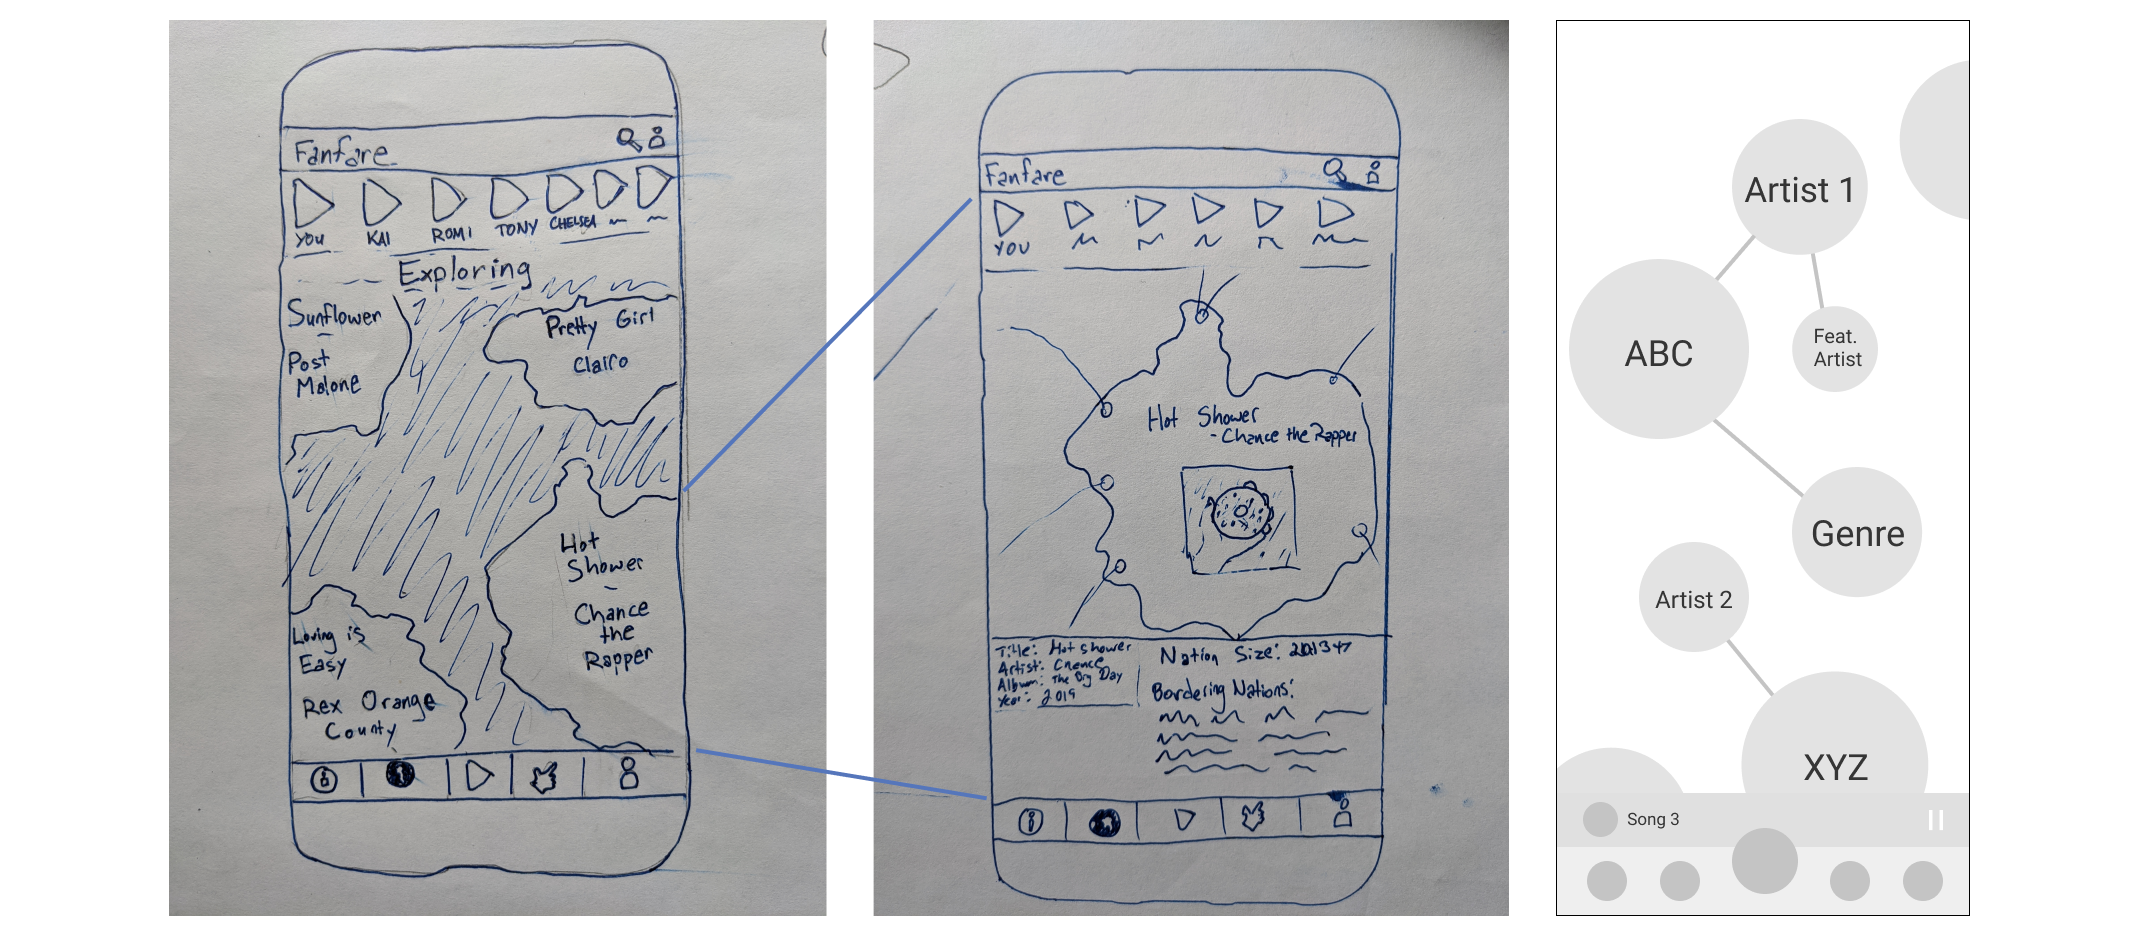 Fanfare
YOU KAI ROMI TONY CHELSEA
Exploring
Sunflower
-
Post
Malone
Pretty Girl
Clairo
Hot
Shower
-
Chance
the
Rapper
Loving is
Easy
Rex Orange
County
Fanfare
YOU
Hot Shower
- Chance the Rapper
Title: Hot Shower
Artist: Chence
Album: The Big Day
Year: 2019
Nation Size:
Bordering Nations:
Artist 1
Feat.
Artist
ABC
Genre
Artist 2
XYZ
Song 3